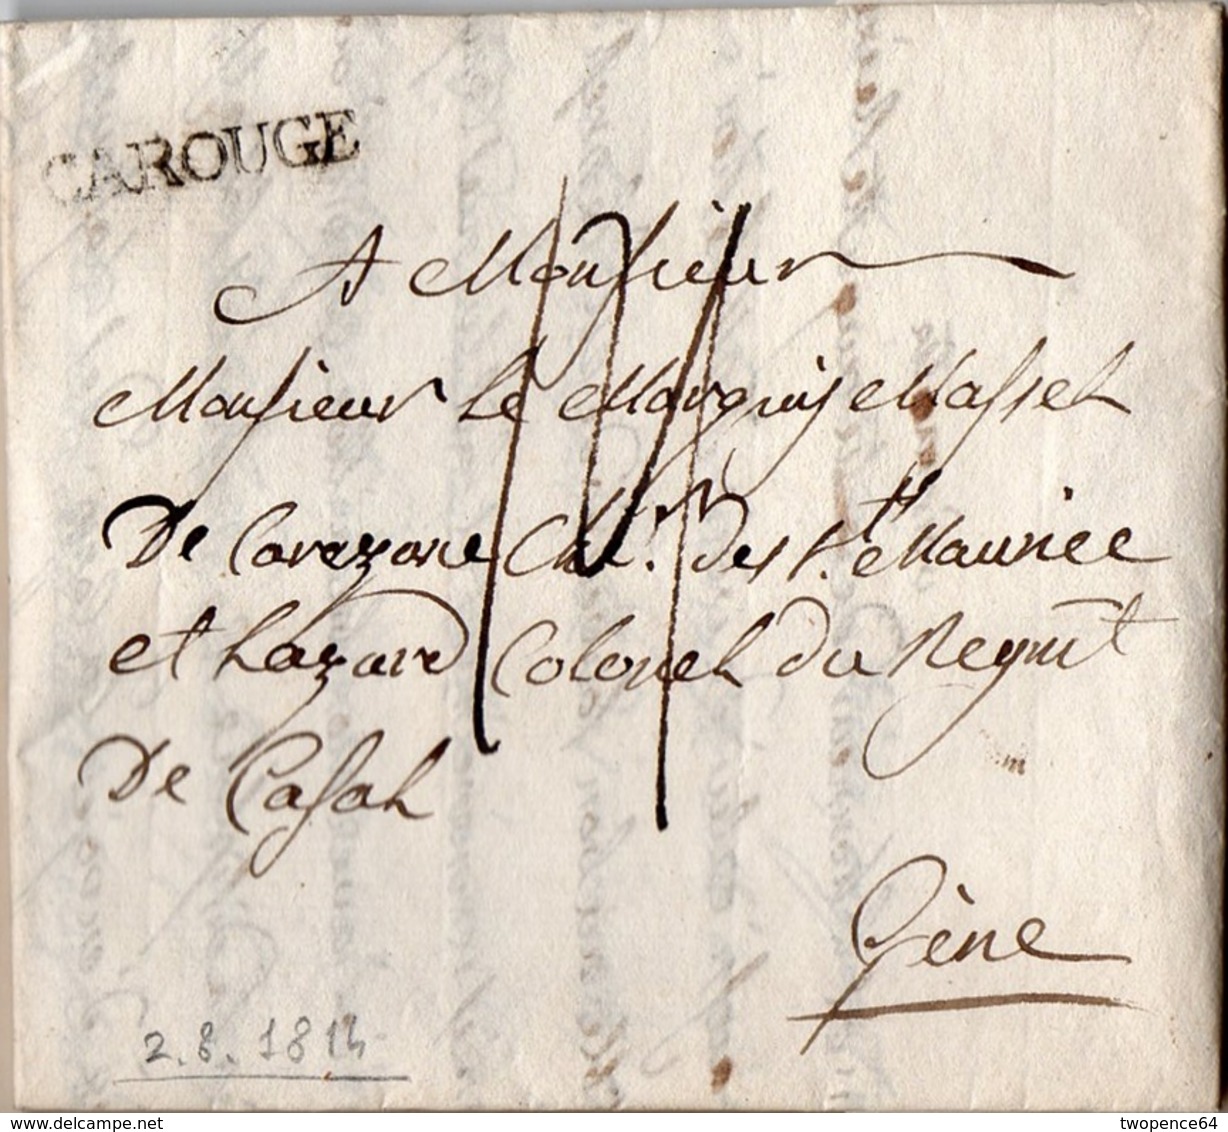 CAROUGE
A Monsieur
Monsieur Le Marquis Massel
De Carezane Ch.r des St. Maurice
et Lazare Colonel du Regmt
De Casal
Gène
2.8.1814
www.delcampe.net
twopence64